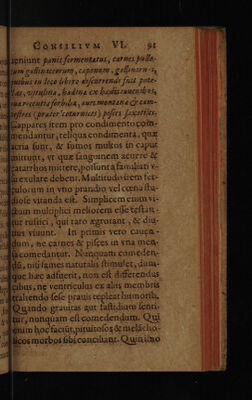 CONSILIVM VI. 91
panis fermentatus, carnes
gallinacerum, caponum,
in loco libero
vitulina, hædina ex hædis
recentia sorbilia, aues montanæ &
(præter coturnices) pisces saxatiles.
Cappares item pro condimento
mendantur, reliqua condimenta, quæ
acria sunt, & fumos multos in caput
mittunt, vt quæ sanguinem acuere &
catarrhos mittere, possunt à familiari
exulare debent. Multitudo item
culorum in vno prandio vel cœna
diosè vitanda est. Simplicem enim
tum multiplici meliorem esse
tur rustici, qui raro ægrotant, & diu
tius viuunt. In primis vero cauen-
dum, ne carnes & pisces in vna men-
sa comedantur. Nunquam comeden-
dū, nisi fames naturalis stimulet,
que hæc adfuerit, non est differendus
cibus, ne ventriculus ex aliis membris
trahendo sese prauis repleat humorib.
Quando grauitas aut fastidium senti-
tur, nunquam est comedendum. Qui
enim hoc faciūt, pituitosos & melācho-
licos morbos sibi conciliant. Quin imo